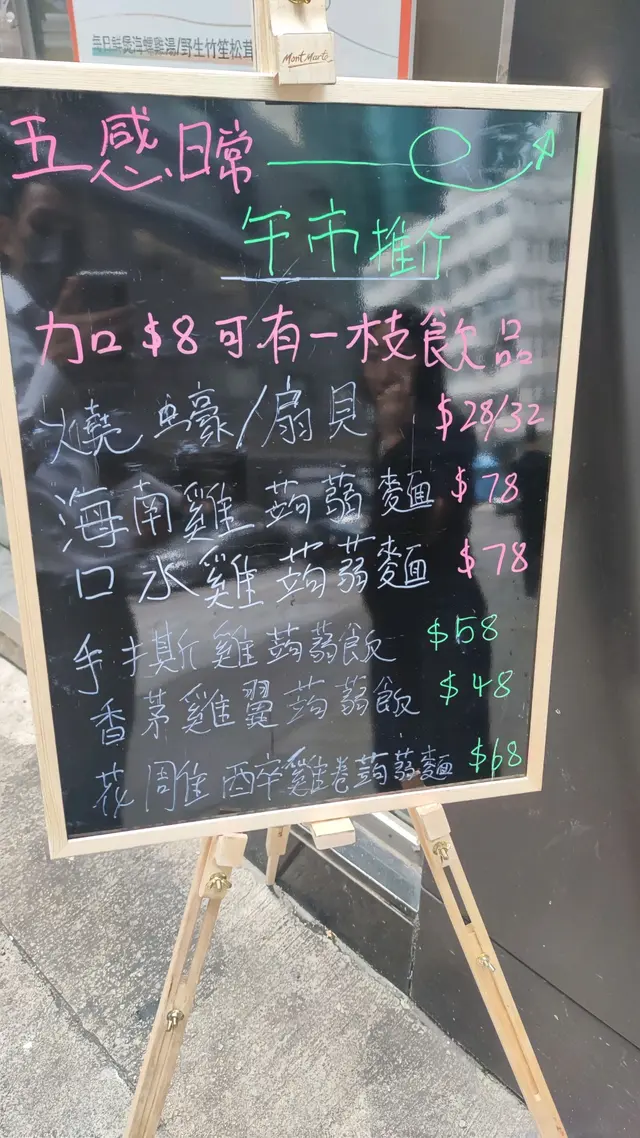 每日鮮煲海螺雞湯/野生竹笙松茸
Mont Marte
五感日常
午市推介
加$8可有一枝飲品
燒蠔/扇貝 $28/32
海南雞蒟蒻麵 $78
口水雞蒟蒻麵 $78
手撕雞蒟蒻飯 $58
香茅雞翼蒟蒻飯 $48
花雕醉雞卷蒟蒻麵 $68